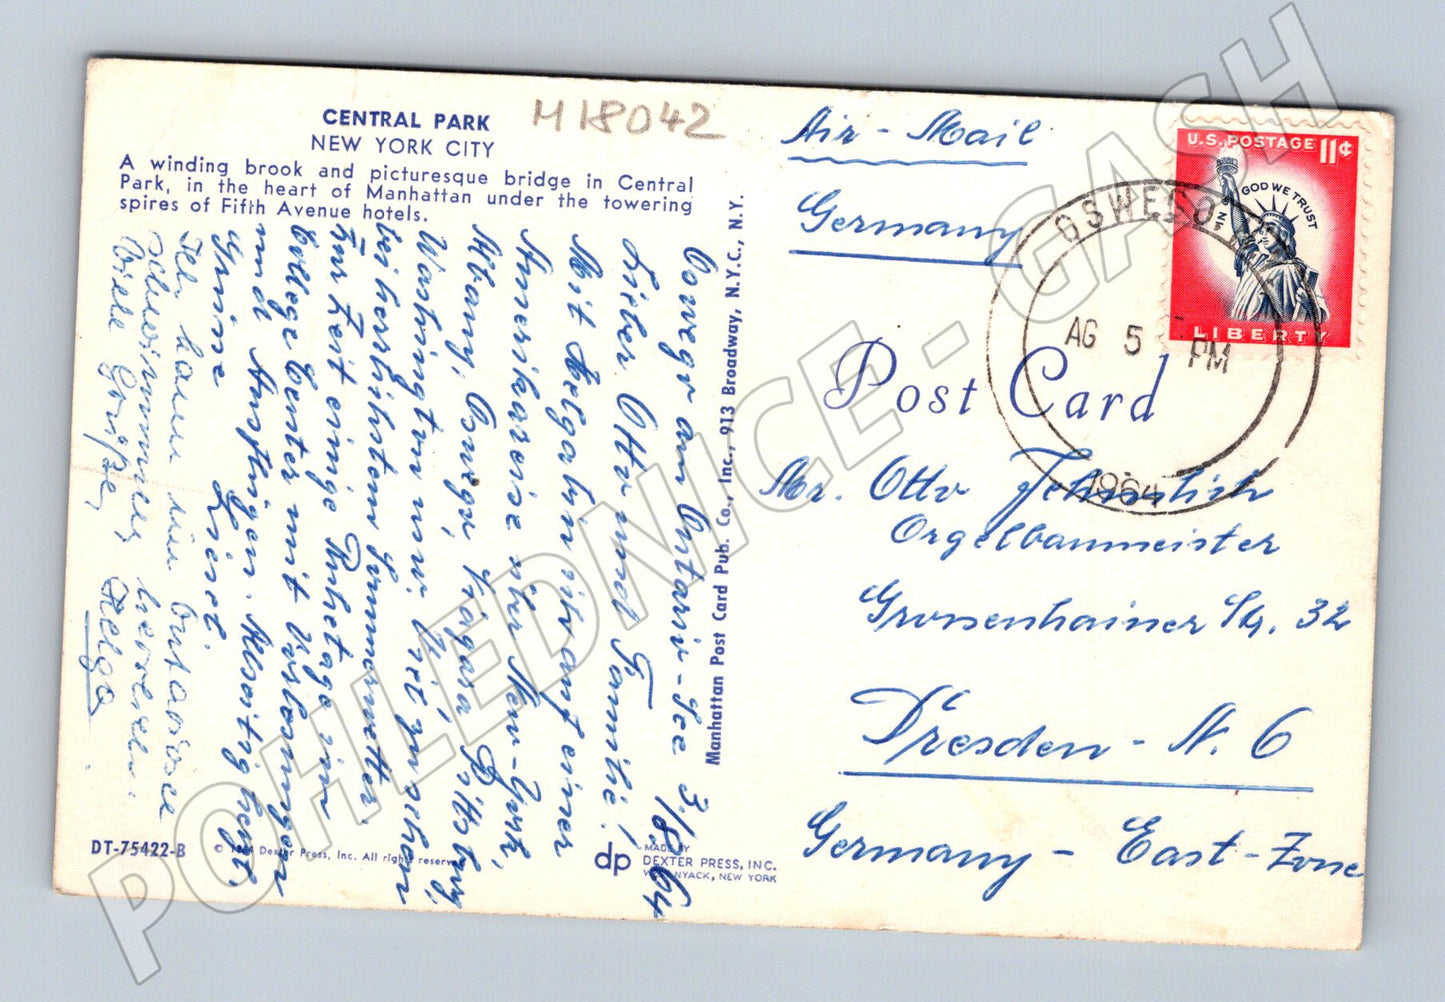 CENTRAL PARK
NEW YORK CITY
A winding brook and picturesque bridge in Central
Park, in the heart of Manhattan under the towering
spires of Fifth Avenue hotels.
M 18042
Oswego am Ontario-See 3/8.64
Lieber Otto und Familie!
Mit Helga bin ich auf einer
Amerikareise über New-York,
Albany, Oswego, Niagara, Pittsburg,
Washington usw. Wir
bei herrlichem Sommerwetter
zur Zeit einige Ruhetage im
College Center mit
und Ausflügen.
Grüsse Liesel.
Ich kann im Ontariosee
schwimmen,
Viele Grüße, Helga
DT-75422-B
© 1964 Dexter Press, Inc. All rights reserved
Manhattan Post Card Pub. Co., Inc., 913 Broadway, N.Y.C., N.Y.
dp
MADE BY
DEXTER PRESS, INC.
WEST NYACK, NEW YORK
Air-Mail
Germany
U.S. POSTAGE 11¢
IN GOD WE TRUST
LIBERTY
OSWEGO, N.Y.
AG 5 PM
1964
Post Card
Mr. Otto Jehmlich
Orgelbaumeister
Grossenhainer Str. 32
Dresden-N. 6
Germany - East-Zone
POHLEDNICE - GASH